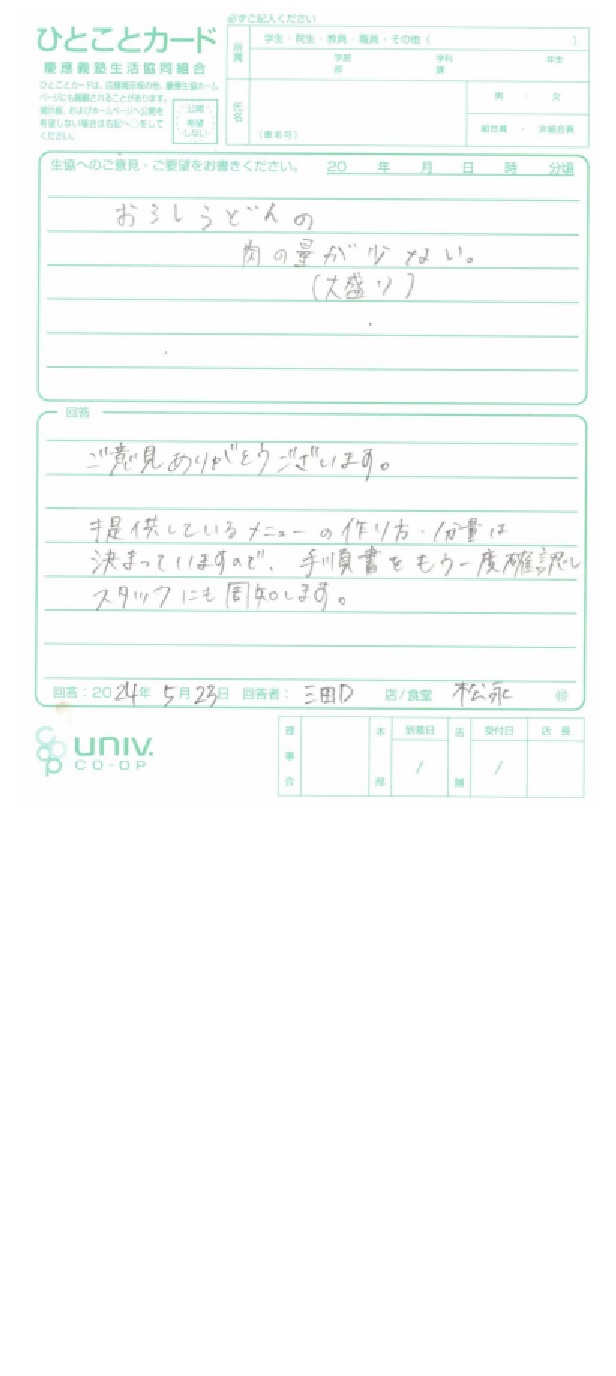 必ずご記入ください
ひとことカード
慶應義塾生活協同組合
ひとことカードは、店舗掲示板の他、慶應生協ホーム
ページにも掲載されることがあります。
掲示板、およびホームページへ公開を
希望しない場合は右記へ○をして
ください。
公開
希望
しない
所属
学生・院生・教員・職員・その他（　　　）
学部　学科　年生
部　課
氏名
（匿名可）
男　・　女
組合員　・　非組合員
生協へのご意見・ご要望をお書きください。　20　年　月　日　時　分頃
おろしうどんの
肉の量が少ない。
（大盛り）
回答
ご意見ありがとうございます。
提供しているメニューの作り方・分量は
決まっていますので、手順書をもう一度確認し
スタッフにも周知します。
回答：2024年 5月23日　回答者：三田D　店/食堂　松永　㊞
UNIV.
CO-OP
理事会
本部
到着日
/
店舗
受付日
/
店長